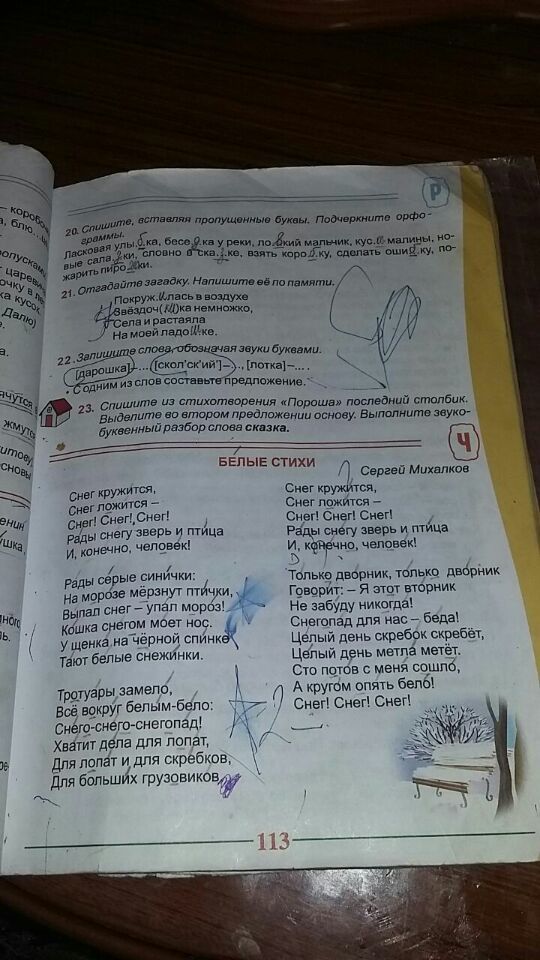 Р
20. Спишите, вставляя пропущенные буквы. Подчеркните орфо-
граммы.
Ласковая улы.б.ка, бесе.д.ка у реки, ло.в.кий мальчик, кус.т. малины, но-
вые сала.з.ки, словно в ска.з.ке, взять коро.б.ку, сделать оши.б.ку, по-
жарить пиро.ж.ки.
21. Отгадайте загадку. Напишите её по памяти.
Покруж.и.лась в воздухе
Звёздоч( )ка немножко,
Села и растаяла
На моей ладо.ш.ке.
22. Запишите слова, обозначая звуки буквами.
[дарошка]–..., [скол'ск'ий']–..., [лотка]–... .
• С одним из слов составьте предложение.
23. Спишите из стихотворения «Пороша» последний столбик.
Выделите во втором предложении основу. Выполните звуко-
буквенный разбор слова сказка.
Ч
БЕЛЫЕ СТИХИ
Сергей Михалков
Снег кружится,
Снег ложится –
Снег! Снег! Снег!
Рады снегу зверь и птица
И, конечно, человек!
Рады серые синички:
На морозе мёрзнут птички,
Выпал снег – упал мороз!
Кошка снегом моет нос.
У щенка на чёрной спинке
Тают белые снежинки.
Тротуары замело,
Всё вокруг белым-бело:
Снего-снего-снегопад!
Хватит дела для лопат,
Для лопат и для скребков,
Для больших грузовиков.
Снег кружится,
Снег ложится –
Снег! Снег! Снег!
Рады снегу зверь и птица
И, конечно, человек!
Только дворник, только дворник
Говорит: – Я этот вторник
Не забуду никогда!
Снегопад для нас – беда!
Целый день скребок скребёт,
Целый день метла метёт.
Сто потов с меня сошло,
А кругом опять бело!
Снег! Снег! Снег!
2
113